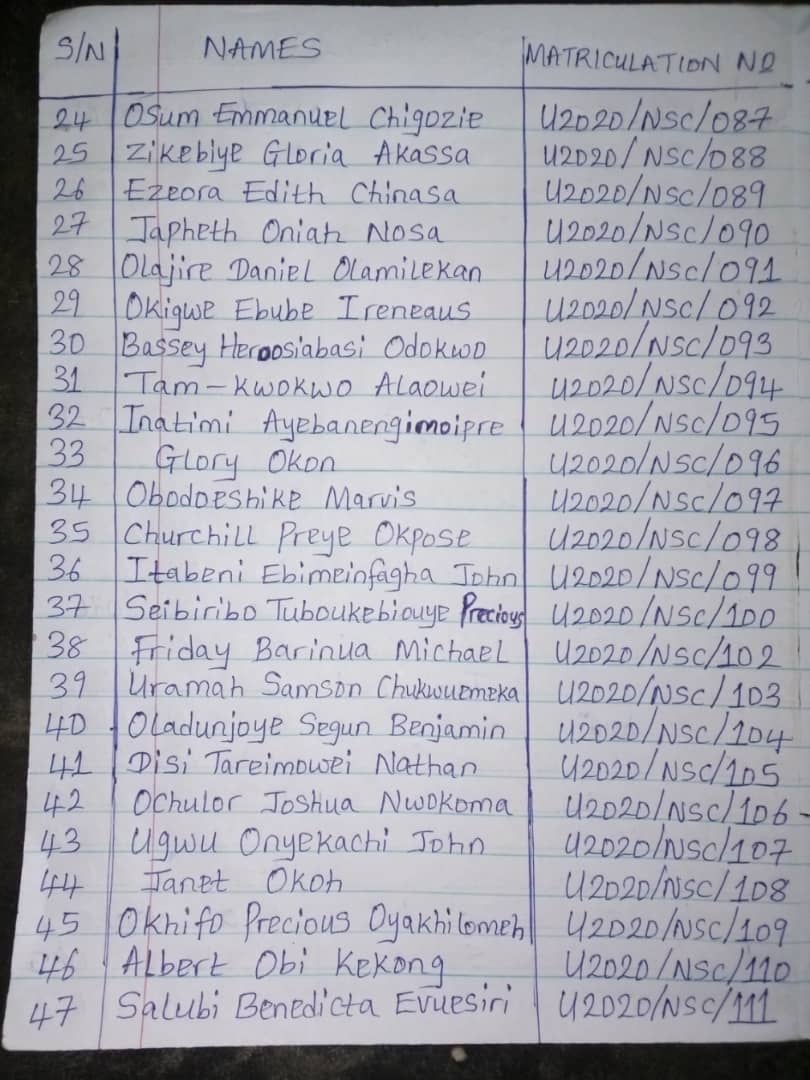 S/N NAMES MATRICULATION NO
24 Osum Emmanuel Chigozie U2020/NSC/087
25 Zikebiye Gloria Akassa U2020/NSC/088
26 Ezeora Edith Chinasa U2020/NSC/089
27 Japheth Oniah Nosa U2020/NSC/090
28 Olajire Daniel Olamilekan U2020/NSC/091
29 Okigwe Ebube Ireneaus U2020/NSC/092
30 Bassey Heroosiabasi Odokwo U2020/NSC/093
31 Tam-Kwokwo Alaowei U2020/NSC/094
32 Inatimi Ayebanengimoipre U2020/NSC/095
33 Glory Okon U2020/NSC/096
34 Obodoeshike Marvis U2020/NSC/097
35 Churchill Preye Okpose U2020/NSC/098
36 Itabeni Ebimeinfagha John U2020/NSC/099
37 Seibiribo Tuboukebiouye Precious U2020/NSC/100
38 Friday Barinua Michael U2020/NSC/102
39 Uramah Samson Chukwuemeka U2020/NSC/103
40 Oladunjoye Segun Benjamin U2020/NSC/104
41 Disi Tareimowei Nathan U2020/NSC/105
42 Ochulor Joshua Nwokoma U2020/NSC/106
43 Ugwu Onyekachi John U2020/NSC/107
44 Janet Okoh U2020/NSC/108
45 Okhifo Precious Oyakhilomeh U2020/NSC/109
46 Albert Obi Kekong U2020/NSC/110
47 Salubi Benedicta Evuesiri U2020/NSC/111